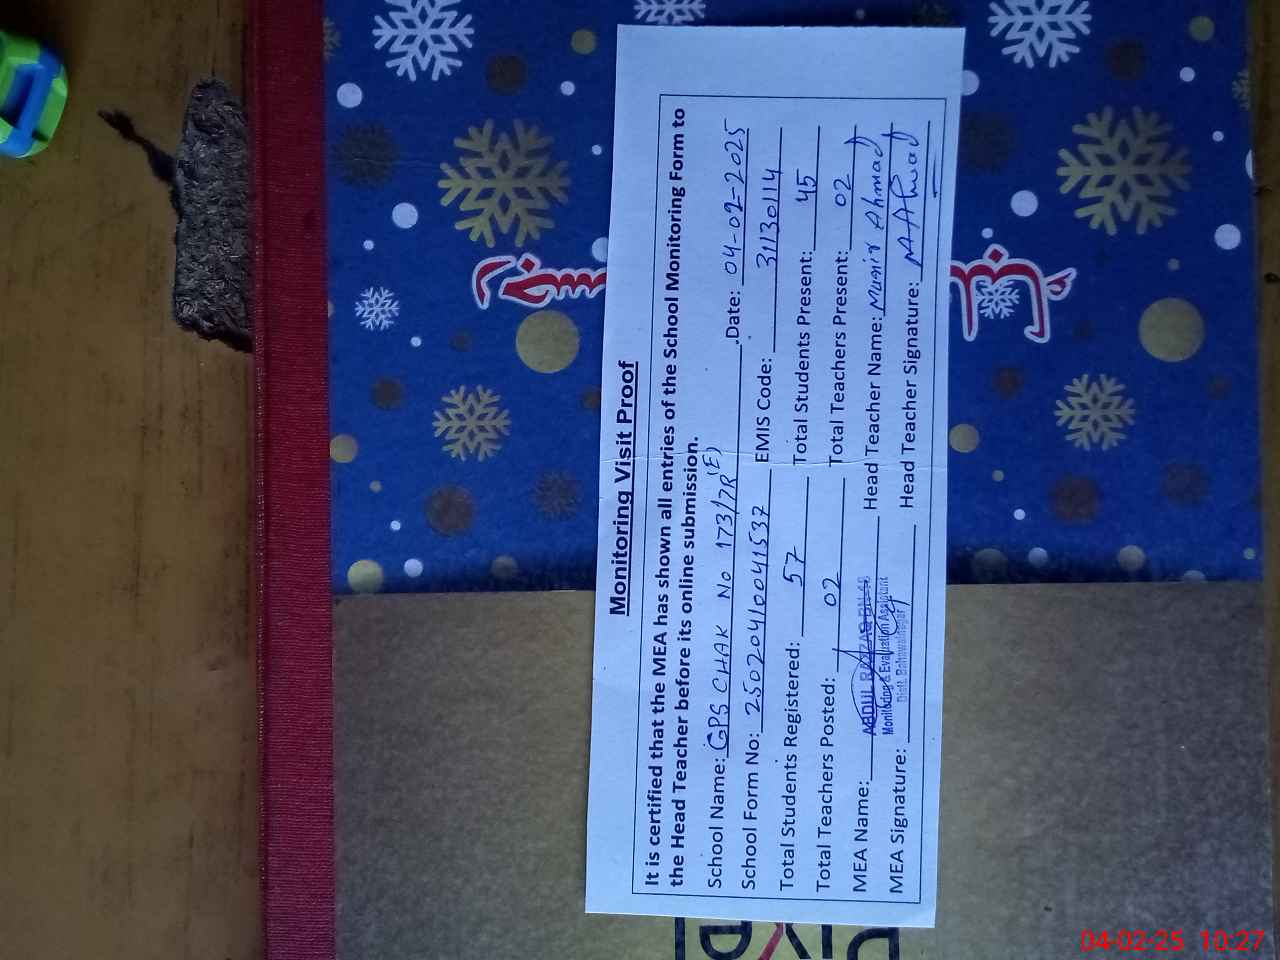 Monitoring Visit Proof
It is certified that the MEA has shown all entries of the School Monitoring Form to
the Head Teacher before its online submission.
School Name: GPS CHAK No 173/7R (E) Date: 04-02-2025
School Form No: 25020410041537 EMIS Code: 31130114
Total Students Registered: 57 Total Students Present: 45
Total Teachers Posted: 02 Total Teachers Present: 02
MEA Name: ABDUL RAZZAQ Head Teacher Name: Munir Ahmad
Monitoring & Evaluation Assistant
Distt. Bahawalnagar
MEA Signature: Head Teacher Signature: MAhmad
04-02-25 10:27